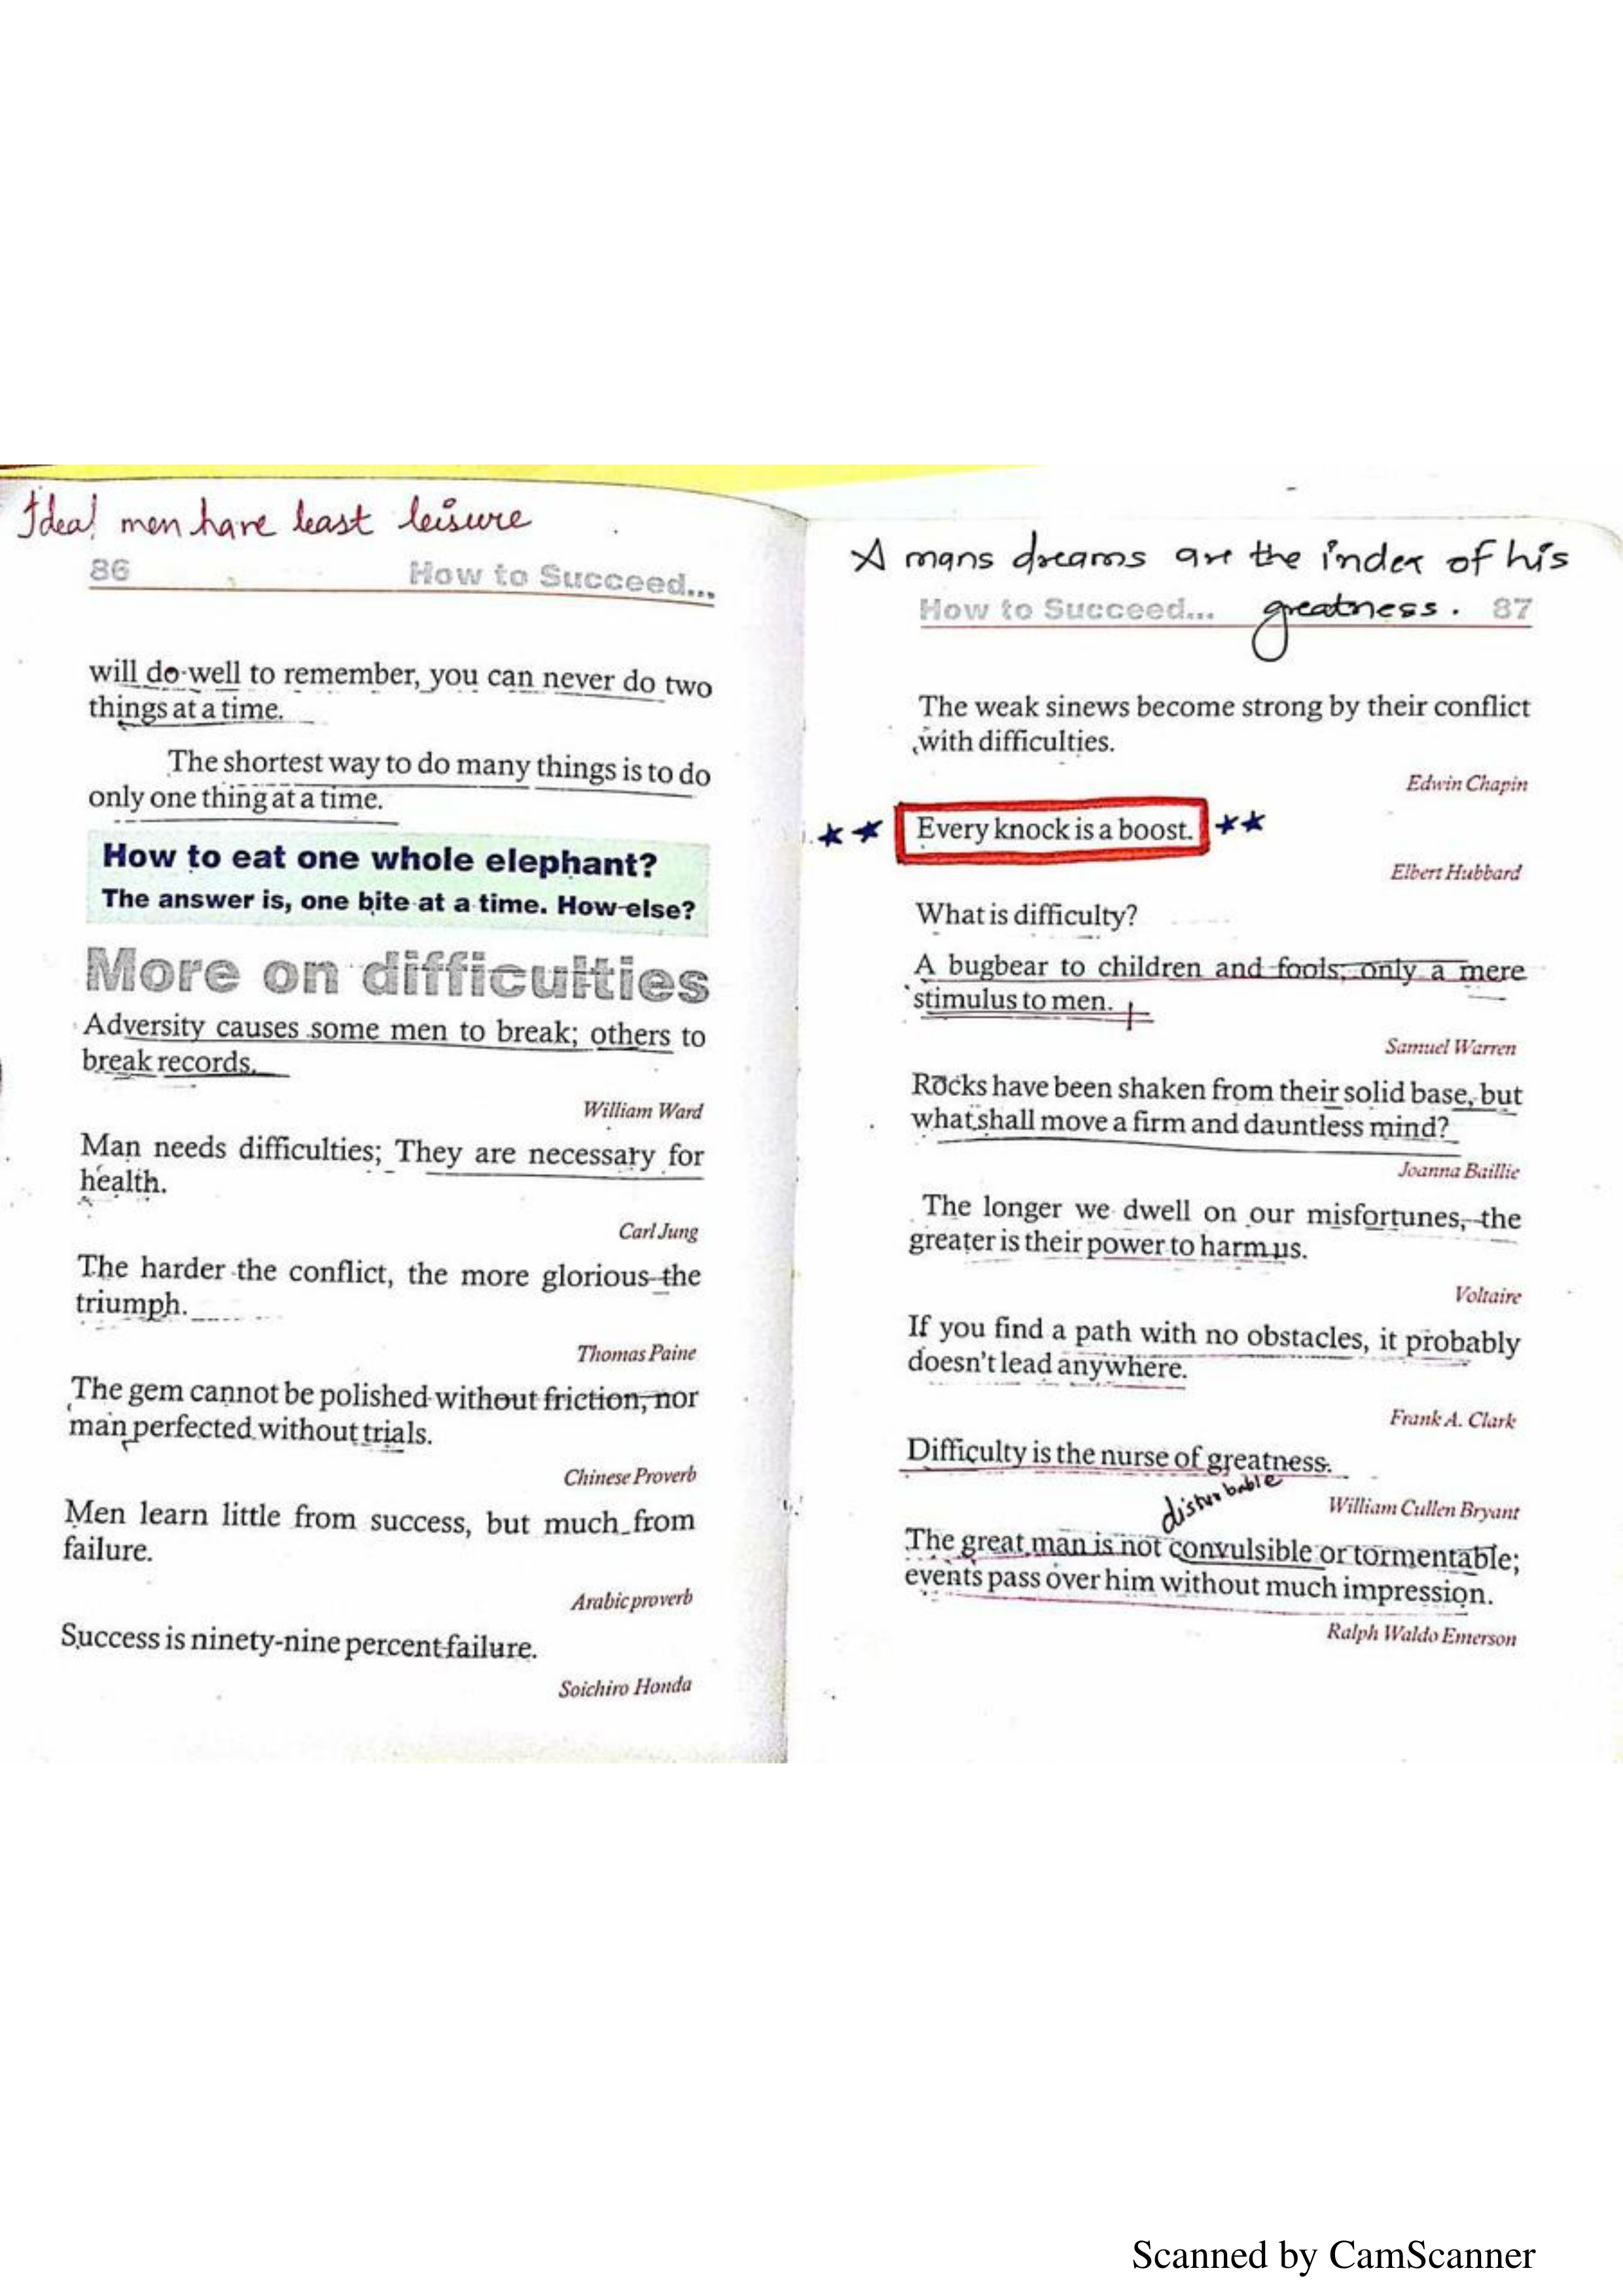 Ideal men have least leisure
86 How to Succeed...
will do well to remember, you can never do two
things at a time.
The shortest way to do many things is to do
only one thing at a time.
How to eat one whole elephant?
The answer is, one bite at a time. How else?
More on difficulties
Adversity causes some men to break; others to
break records.
William Ward
Man needs difficulties; They are necessary for
health.
Carl Jung
The harder the conflict, the more glorious the
triumph.
Thomas Paine
The gem cannot be polished without friction, nor
man perfected without trials.
Chinese Proverb
Men learn little from success, but much from
failure.
Arabic proverb
Success is ninety-nine percent failure.
Soichiro Honda
A mans dreams are the index of his
greatness.
How to Succeed... 87
The weak sinews become strong by their conflict
with difficulties.
Edwin Chapin
Every knock is a boost.
Elbert Hubbard
What is difficulty?
A bugbear to children and fools; only a mere
stimulus to men.
Samuel Warren
Rocks have been shaken from their solid base, but
what shall move a firm and dauntless mind?
Joanna Baillie
The longer we dwell on our misfortunes, the
greater is their power to harm us.
Voltaire
If you find a path with no obstacles, it probably
doesn't lead anywhere.
Frank A. Clark
Difficulty is the nurse of greatness.
William Cullen Bryant
disturbable
The great man is not convulsible or tormentable;
events pass over him without much impression.
Ralph Waldo Emerson
Scanned by CamScanner